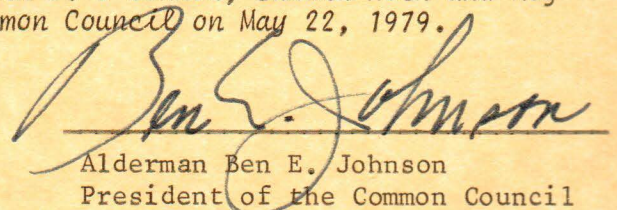 mon Council on May 22, 1979.
Ben E. Johnson
Alderman Ben E. Johnson
President of the Common Council